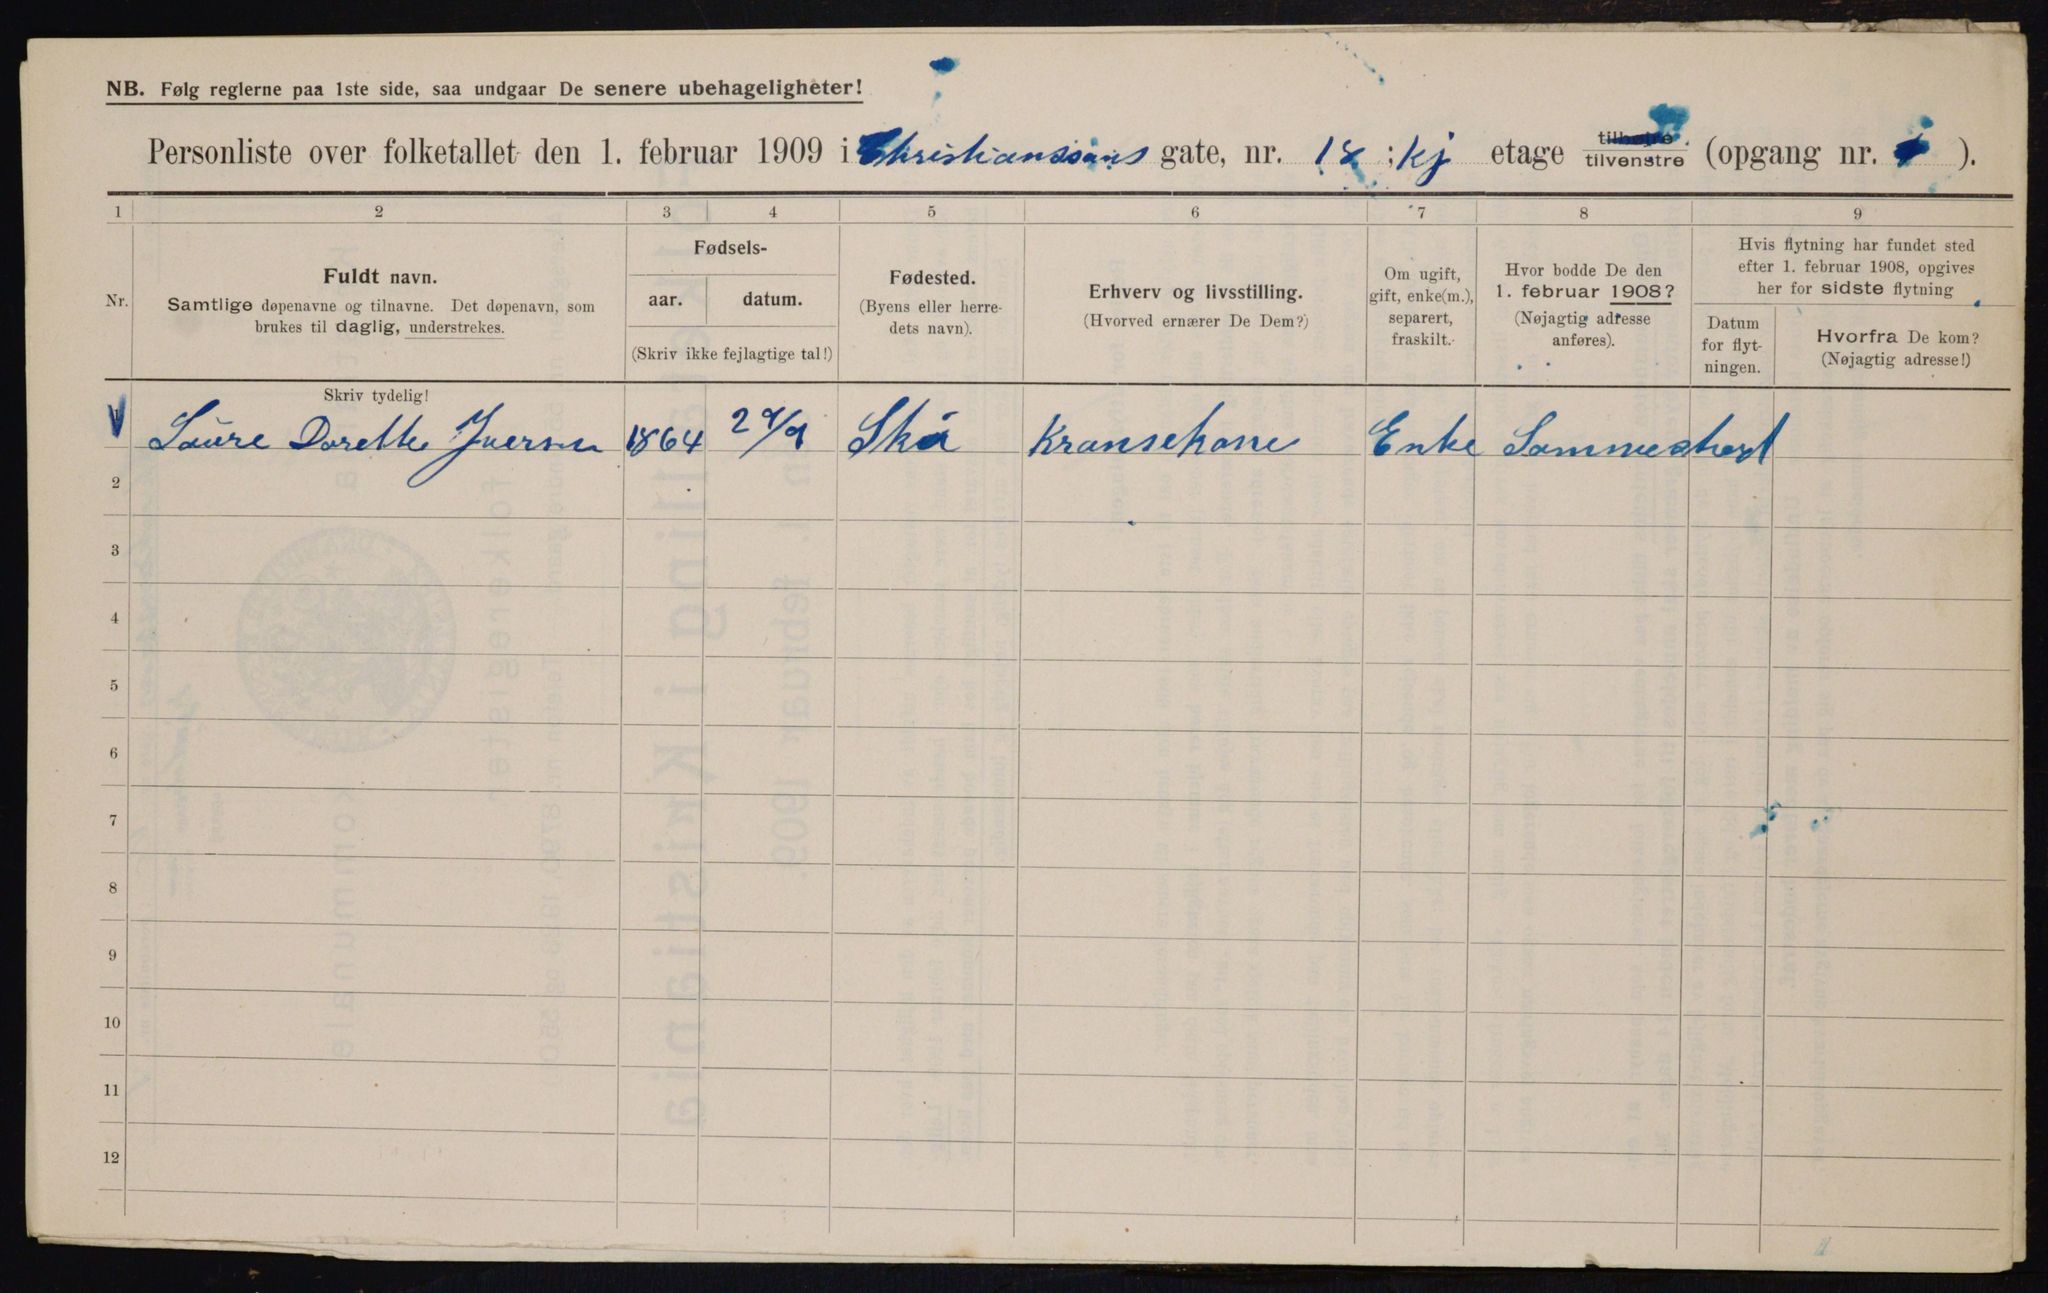 NB. Følg reglerne paa 1ste side, saa undgaar De senere ubehageligheter!
Personliste over folketallet den 1. februar 1909 i Christianssans gate, nr. 18 : Kj etage tilhøjre. tilvenstre (opgang nr. ).
1 2 3 4 5 6 7 8 9
Nr.
Fuldt navn.
Samtlige døpenavne og tilnavne. Det døpenavn, som
brukes til daglig, understrekes.
Fødsels-
aar. datum.
(Skriv ikke fejlagtige tal!)
Fødested.
(Byens eller herre-
dets navn).
Erhverv og livsstilling.
(Hvorved ernærer De Dem?)
Om ugift,
gift, enke(m.),
separert,
fraskilt.
Hvor bodde De den
1. februar 1908?
(Nøjagtig adresse
anføres).
Hvis flytning har fundet sted
efter 1. februar 1908, opgives
her for sidste flytning
Datum
for flyt-
ningen.
Hvorfra De kom?
(Nøjagtig adresse!)
Skriv tydelig!
1 Laure Dorethe Iversen 1864 29/9 Skå Kransekone Enke Sammested
2
3
4
5
6
7
8
9
10
11
12